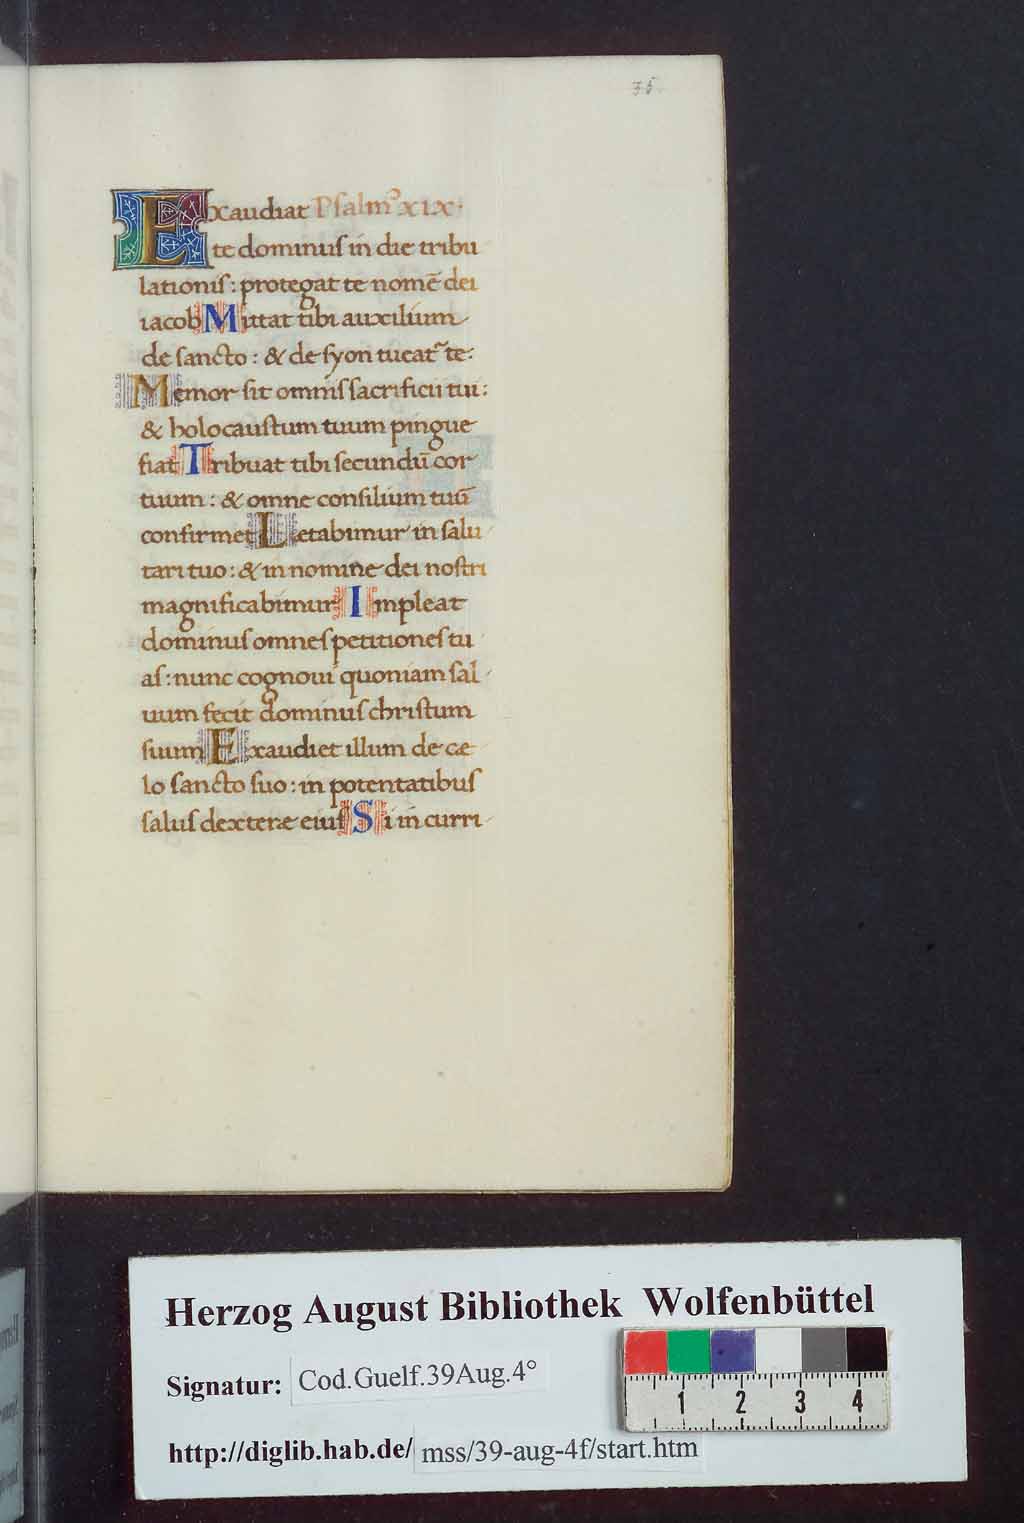 35.
Exaudiat Psalmꝰ xix.
te dominuſ in die tribu
lationiſ: protegat te nomē dei
iacob Mittat tibi auxilium
de ſancto: & de ſyon tueat᷑ te:
Memor ſit omniſ ſacrificii tui:
& holocauſtum tuum pingue
fiat Tribuat tibi ſecundū cor
tuum: & omne conſilium tuū
confirmet Letabimur in ſalu
tari tuo: & in nomine dei noſtri
magnificabimur Impleat
dominuſ omneſ petitioneſ tu
aſ: nunc cognoui quoniam ſal
uum fecit dominuſ chriſtum
ſuum Exaudiet illum de cæ
lo ſancto ſuo: in potentatibuſ
ſaluſ dexteræ eiuſ Si in curri
Herzog August Bibliothek Wolfenbüttel
Signatur: Cod.Guelf.39Aug.4°
1 2 3 4
http://diglib.hab.de/ mss/39-aug-4f/start.htm